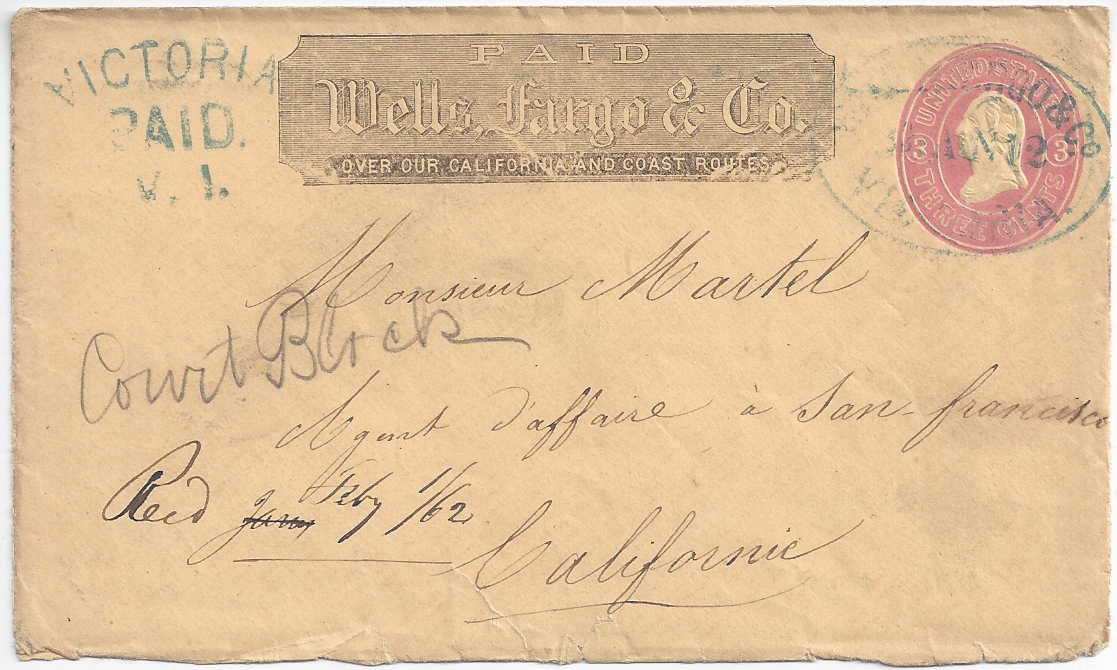 VICTORIA
PAID.
V. I.
PAID
Wells, Fargo & Co.
OVER OUR CALIFORNIA AND COAST ROUTES.
UNITED STATES
3 3
THREE CENTS
FARGO & Co
JAN 12
Monsieur Martel
Court Block
Agent d'affaire à San-francisco
Recd Jany Feby 1/62
Californie